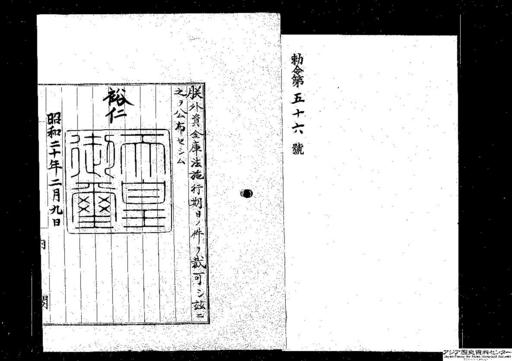 勅令第五十六號
朕外資金庫法施行期日ノ件ヲ裁可シ茲ニ
之ヲ公布セシム
裕仁
天皇御璽
昭和二十年二月九日
内閣
アジア歴史資料センター